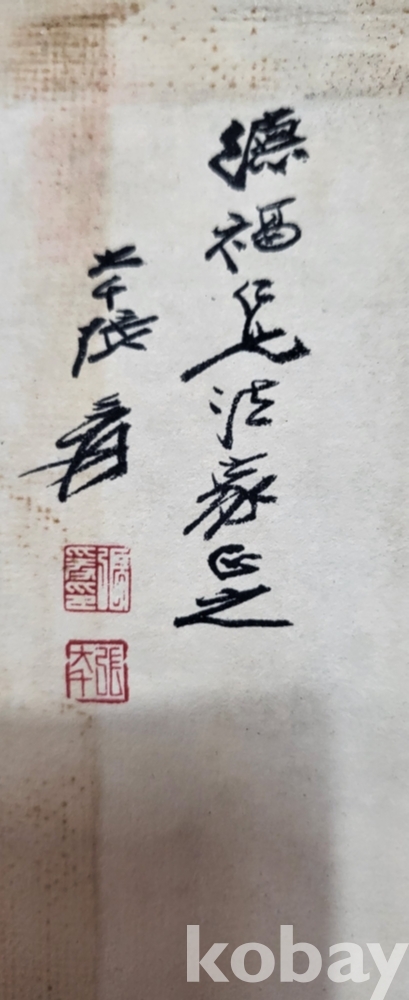 德福仁兄法家正之
大千張爰
張大千
kobay